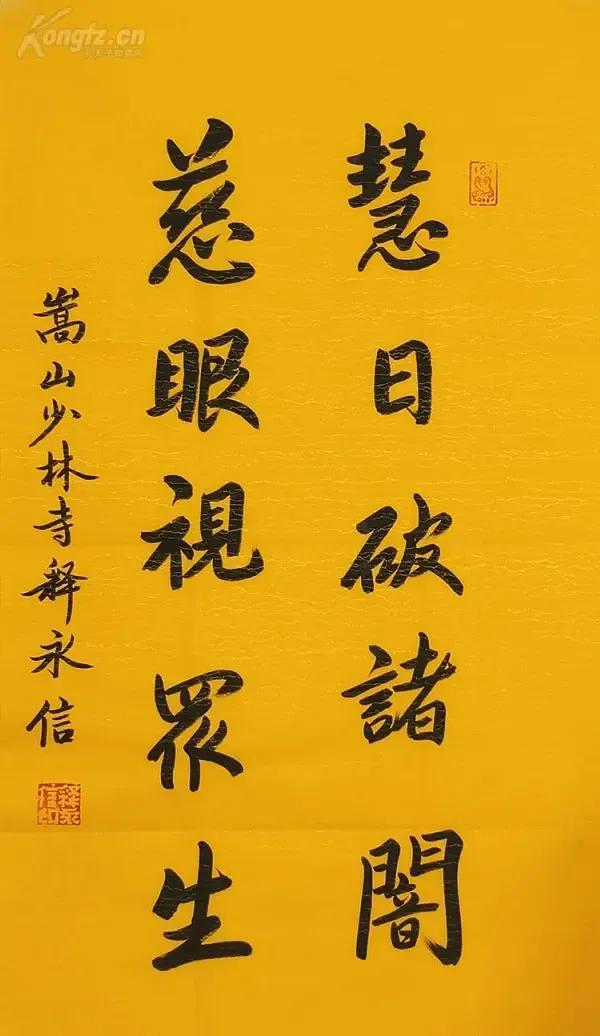 慧日破諸闇
慈眼視眾生
嵩山少林寺释永信
Kongfz.cn